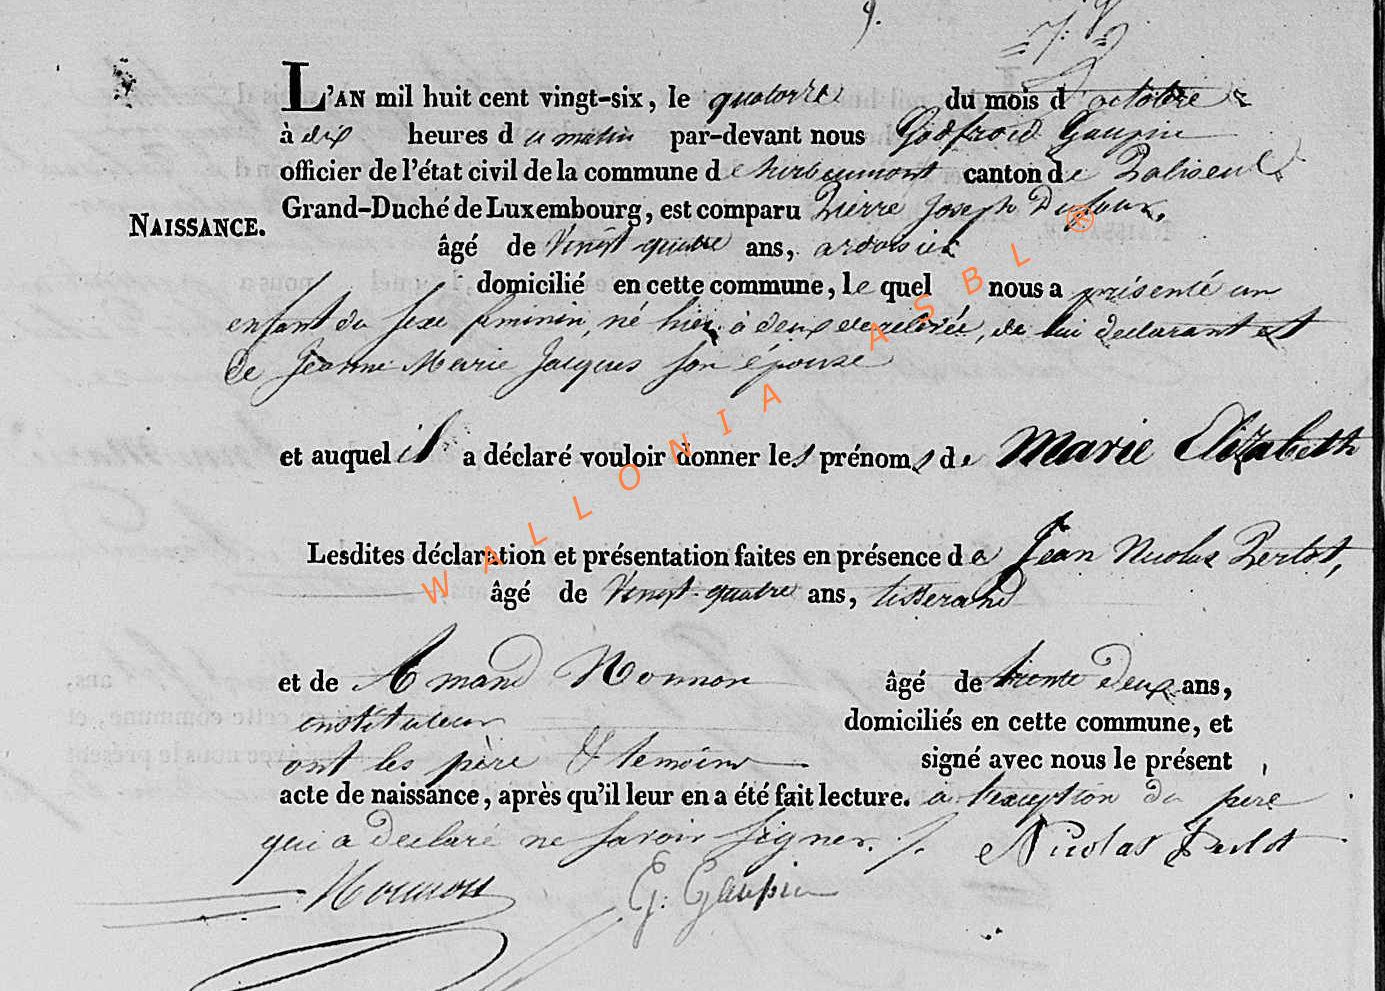 9.
L'AN mil huit cent vingt-six, le quatorze du mois d'octobre
à dix heures du matin par-devant nous Godfroid Gaupin
officier de l'état civil de la commune de herbeumont canton de Paliseul
Grand-Duché de Luxembourg, est comparu Pierre Joseph
NAISSANCE.
âgé de Vingt-quatre ans, ardoisier
domicilié en cette commune, le quel nous a présenté un
enfant du sexe feminin, né hier à deux de relevée, de lui declarant et
de Jeanne Marie Jacques son épouse
et auquel il a déclaré vouloir donner les prénoms de Marie Elizabeth
Lesdites déclaration et présentation faites en présence de Jean Nicolas Perlot,
âgé de Vingt-quatre ans, tisserand
et de Amand Nonnon âgé de trente deux ans,
instituteur domiciliés en cette commune, et
ont les père & temoins signé avec nous le présent
acte de naissance, après qu'il leur en a été fait lecture. a l'exception du père
qui a declaré ne savoir signer. Nicolas Perlot
Nonnon G. Gaupin
WALLONIA ASBL ®